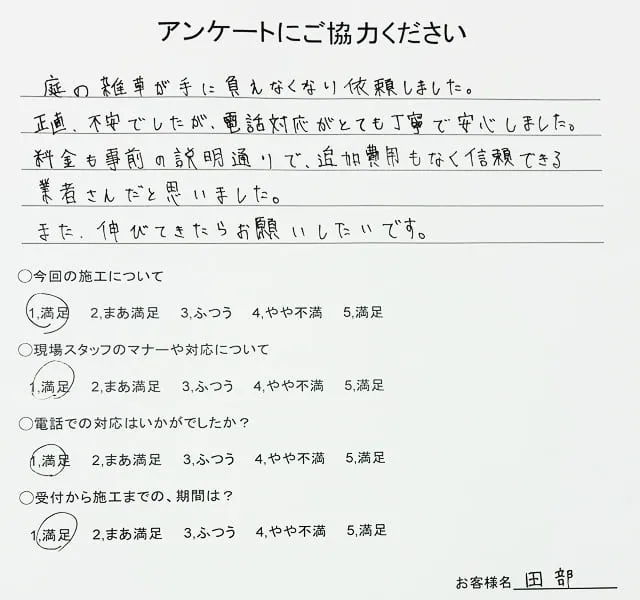 アンケートにご協力ください
庭の雑草が手に負えなくなり依頼しました。
正直、不安でしたが、電話対応がとても丁寧で安心しました。
料金も事前の説明通りで、追加費用もなく信頼できる
業者さんだと思いました。
また、伸びてきたらお願いしたいです。
〇今回の施工について
1,満足 2,まあ満足 3,ふつう 4,やや不満 5,満足
〇現場スタッフのマナーや対応について
1,満足 2,まあ満足 3,ふつう 4,やや不満 5,満足
〇電話での対応はいかがでしたか？
1,満足 2,まあ満足 3,ふつう 4,やや不満 5,満足
〇受付から施工までの、期間は？
1,満足 2,まあ満足 3,ふつう 4,やや不満 5,満足
お客様名 田部